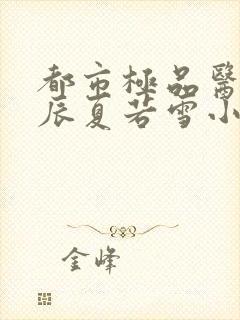 都市極品醫
辰夏若雪小
金峰